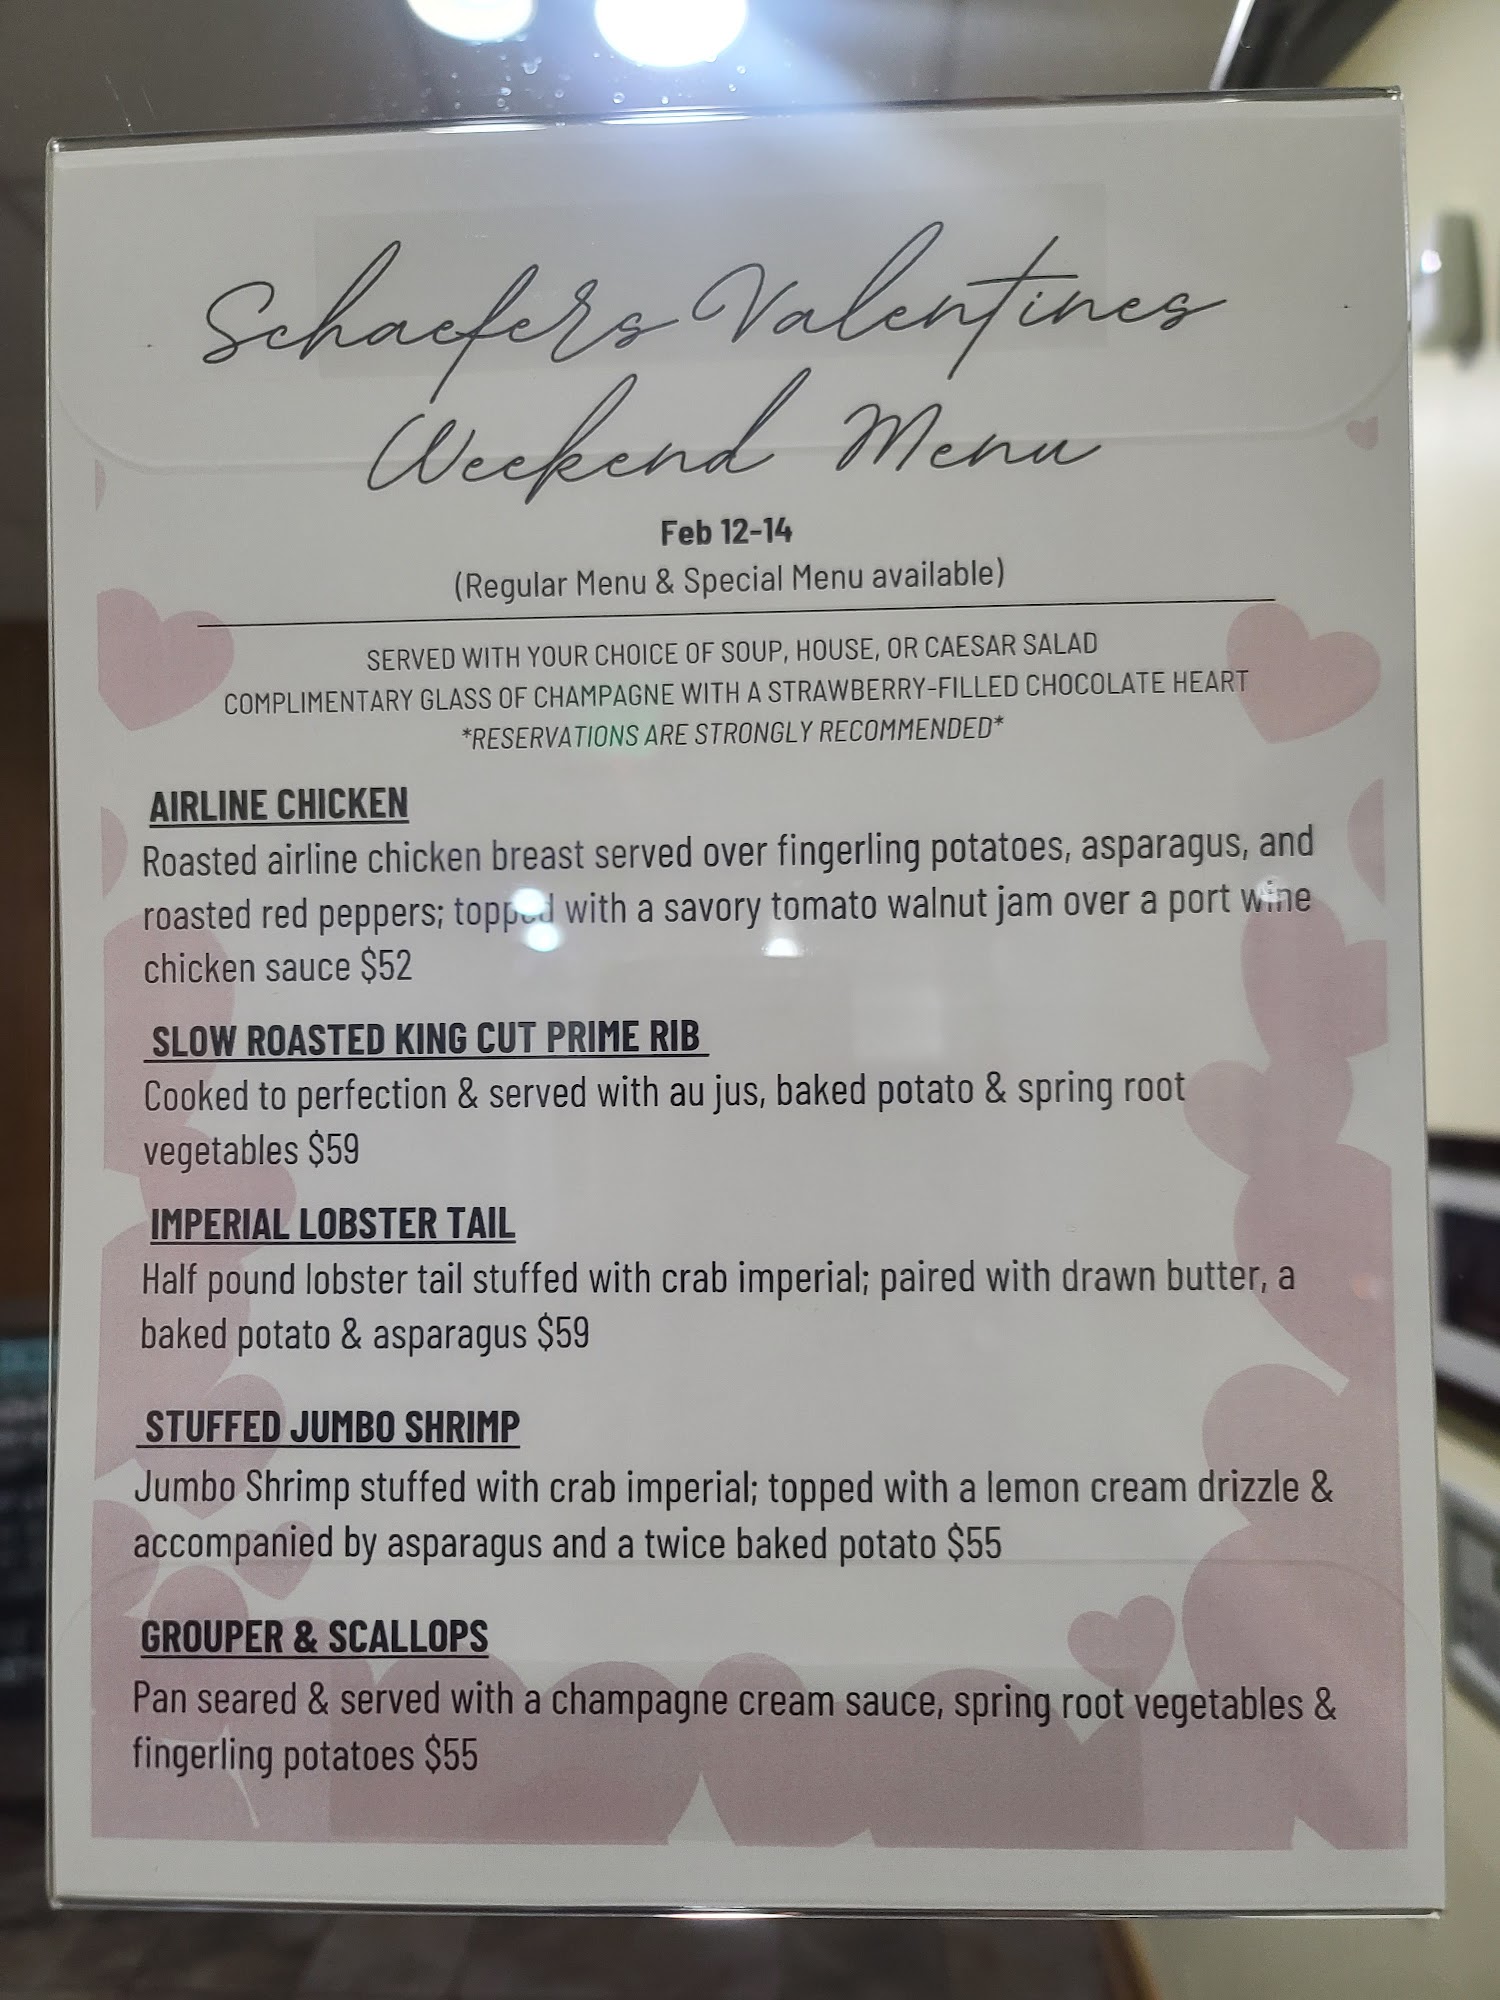 Schaefers Valentines
Weekend Menu
Feb 12-14
(Regular Menu & Special Menu available)
SERVED WITH YOUR CHOICE OF SOUP, HOUSE, OR CAESAR SALAD
COMPLIMENTARY GLASS OF CHAMPAGNE WITH A STRAWBERRY-FILLED CHOCOLATE HEART
*RESERVATIONS ARE STRONGLY RECOMMENDED*
AIRLINE CHICKEN
Roasted airline chicken breast served over fingerling potatoes, asparagus, and
roasted red peppers; topped with a savory tomato walnut jam over a port wine
chicken sauce $52
SLOW ROASTED KING CUT PRIME RIB
Cooked to perfection & served with au jus, baked potato & spring root
vegetables $59
IMPERIAL LOBSTER TAIL
Half pound lobster tail stuffed with crab imperial; paired with drawn butter, a
baked potato & asparagus $59
STUFFED JUMBO SHRIMP
Jumbo Shrimp stuffed with crab imperial; topped with a lemon cream drizzle &
accompanied by asparagus and a twice baked potato $55
GROUPER & SCALLOPS
Pan seared & served with a champagne cream sauce, spring root vegetables &
fingerling potatoes $55